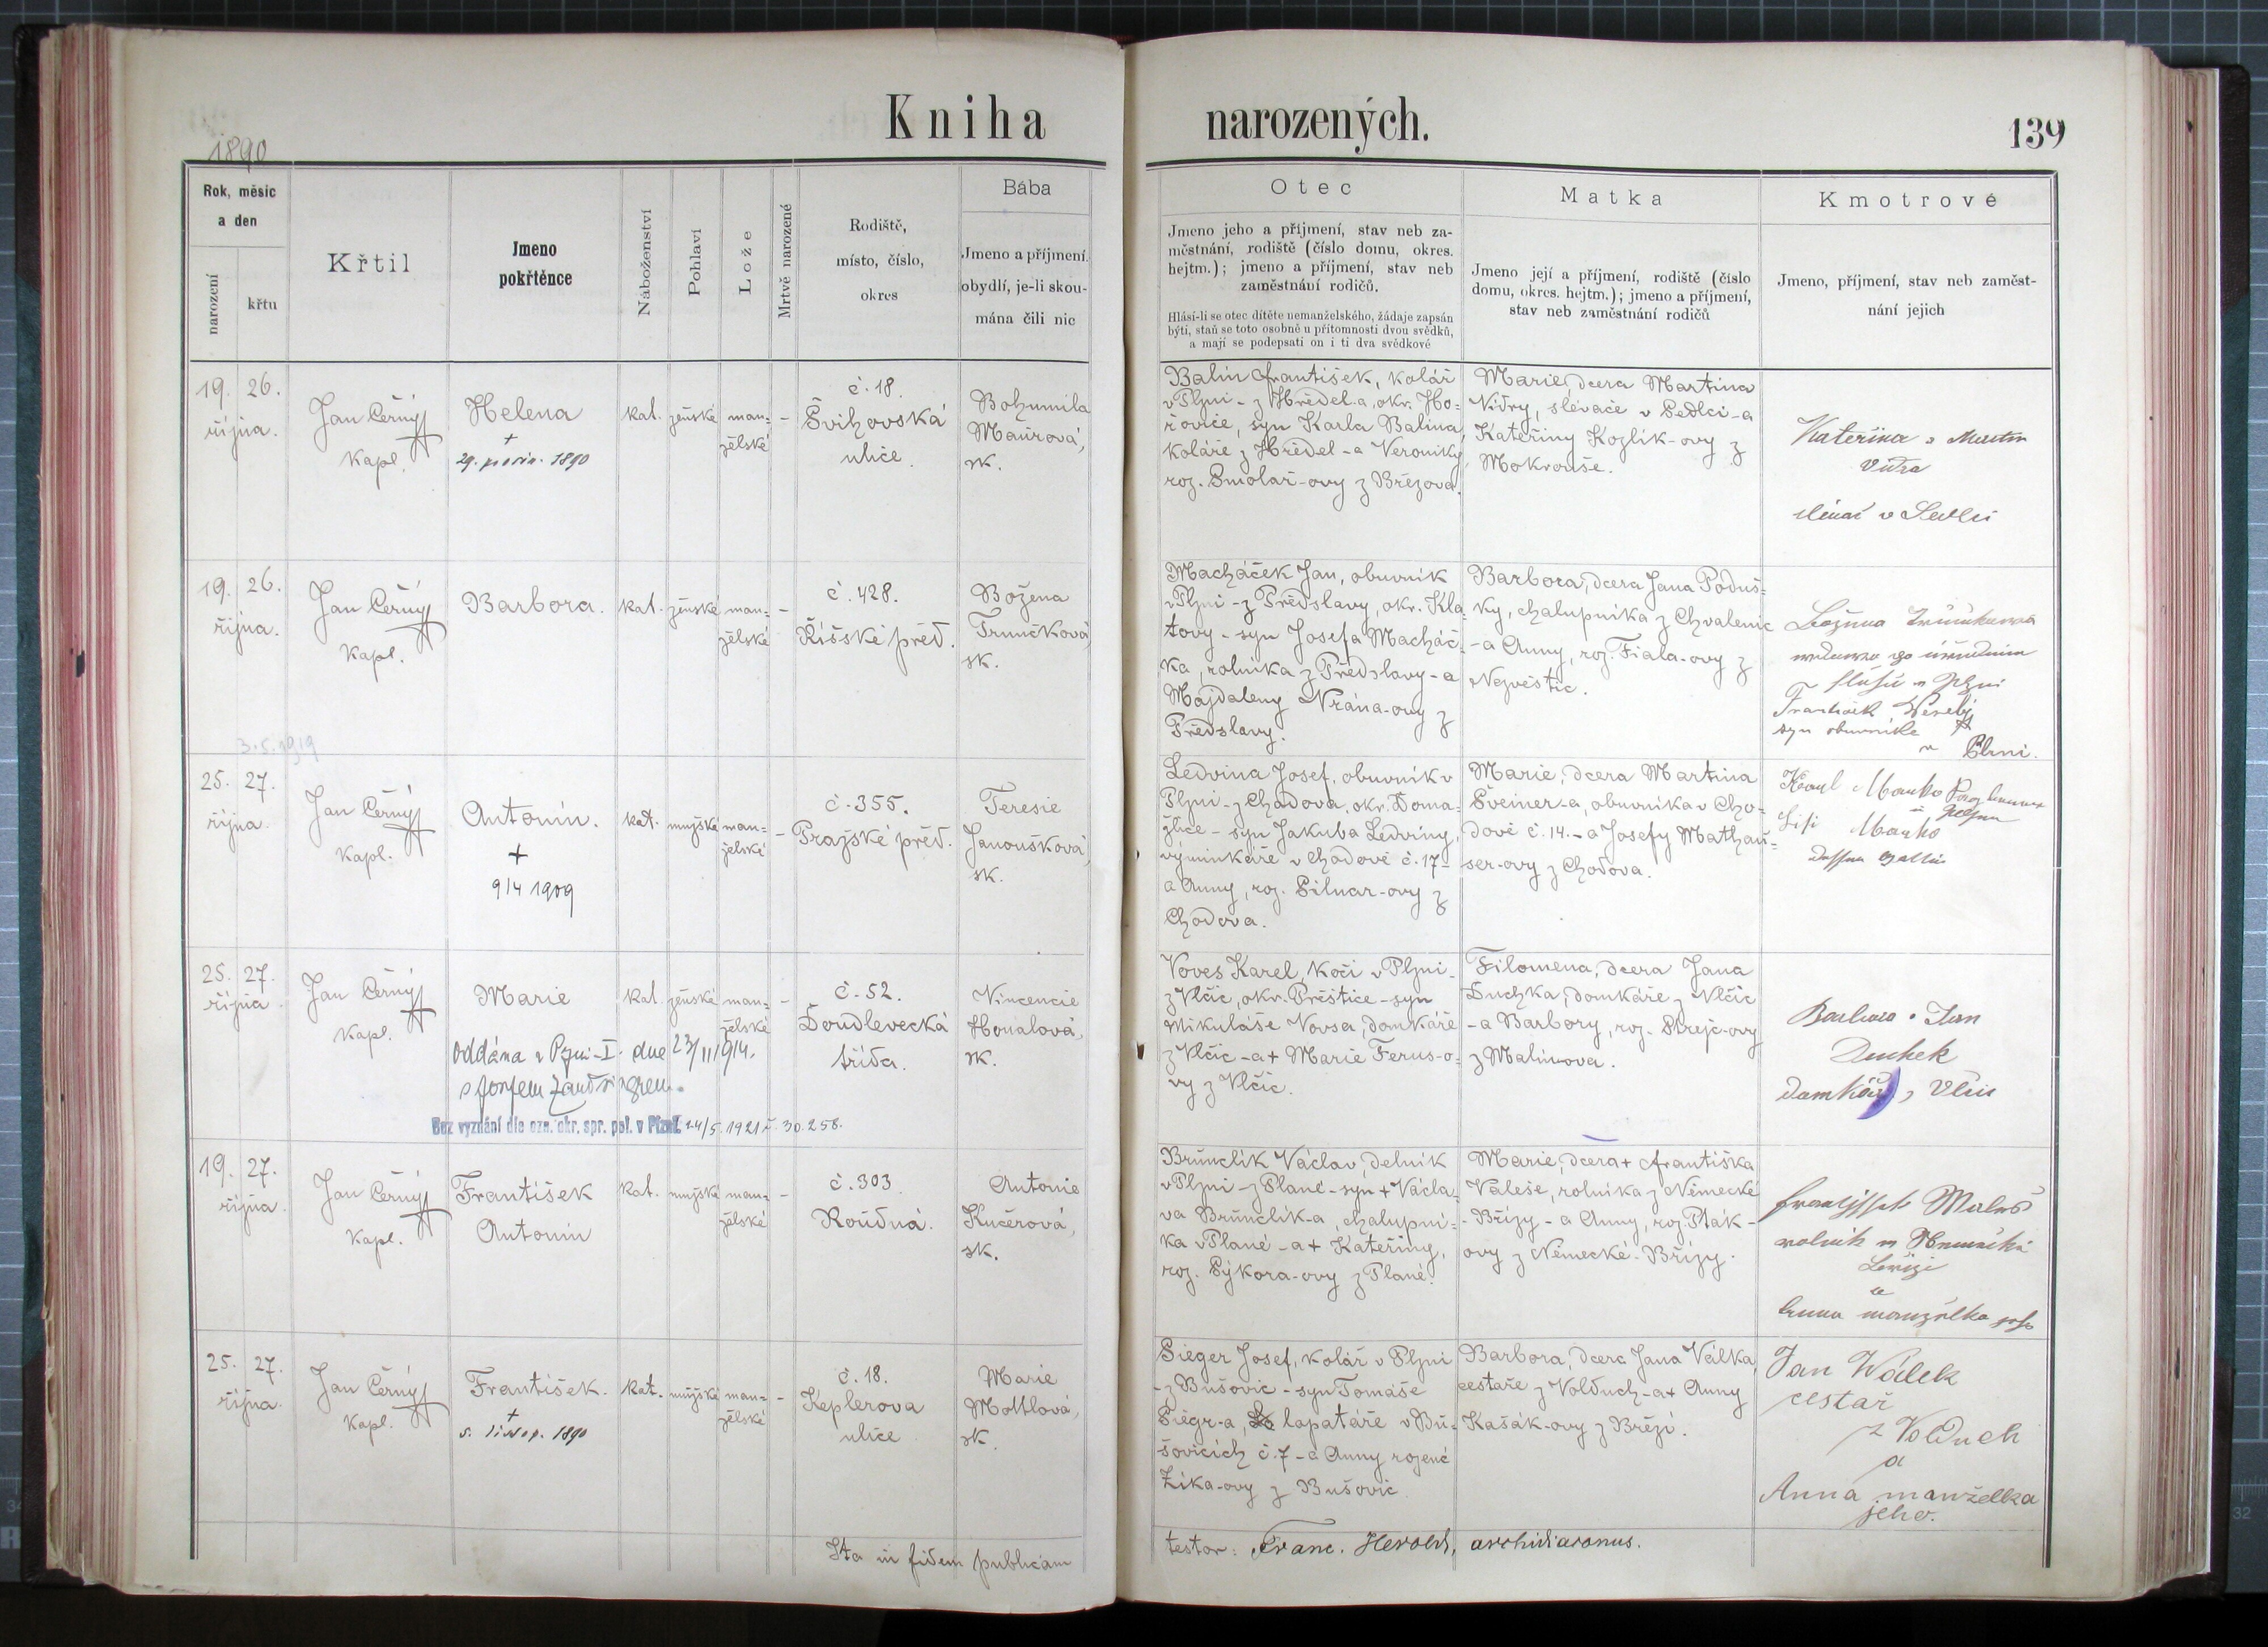 Kniha narozených.
139
1890
Rok, měsíc
a den
narození
křtu
Křtil
Jmeno
pokřtěnce
Náboženství
Pohlaví
Lože
Mrtvě narozené
Rodiště,
místo, číslo,
okres
Bába
Jmeno a příjmení,
obydlí, je-li skou-
mána čili nic
Otec
Jmeno jeho a příjmení, stav neb za-
městnání, rodiště (číslo domu, okres.
hejtm.); jmeno a příjmení, stav neb
zaměstnání rodičů.
Hlásí-li se otec dítěte nemanželského, žádaje zapsán
býti, staň se toto osobně u přítomnosti dvou svědků,
a mají se podepsati on i ti dva svědkové
Matka
Jmeno její a příjmení, rodiště (číslo
domu, okres. hejtm.); jmeno a příjmení,
stav neb zaměstnání rodičů
Kmotrové
Jmeno, příjmení, stav neb zaměst-
nání jejich
19. 26.
října.
Jan Černý
Kapl.
Helena
+
29. prosin. 1890
kat. ženské man-
želské
-
č. 18.
Švihovská
ulice.
Bohumila
Maurová,
zk.
Balín František, kolář
v Plzni - z Hředel-a, okr. Ho-
řovice, syn Karla Balína,
koláře z Hředel - a Veroniky,
roz. Smolař-ovy z Březova.
Marie, dcera Martina
Vidry, slévače v Sedlci - a
Kateřiny Kozlík-ovy z
Mokrouše.
Kateřina a Martin
Vidra
v Sedlci
19. 26.
října.
Jan Černý
Kapl.
Barbora.
kat. ženské man-
želské
-
č. 428.
Říšské před.
Božena
Trunčková
zk.
Macháček Jan, obuvník
v Plzni - z Předslavy, okr. Kla-
tovy - syn Josefa Macháč-
ka, rolníka z Předslavy - a
Majdaleny Vrána-ovy z
Předslavy.
Barbora, dcera Jana Poduš-
ky, chalupníka z Chválenic
- a Anny, roz. Fiala-ovy z
Nezvěstic.
František Veselý
syn obuvníka
v Plzni.
3.5.1919
25. 27.
října.
Jan Černý
Kapl.
Antonín.
+
9/4 1909
kat. mužské man-
želské
-
č. 355.
Pražské před.
Teresie
Janoušková,
zk.
Ledvina Josef, obuvník v
Plzni - z Chodova, okr. Doma-
žlice - syn Jakuba Ledviny,
výminkáře v Chodově č. 17 -
a Anny, roz. Pilnar-ovy z
Chodova.
Marie, dcera Martina
Šveiner-a, obuvníka v Cho-
dově č. 14. - a Josefy Mathau-
ser-ovy z Chodova.
Karl Manko
Manko
25. 27.
října
Jan Černý
Kapl.
Marie
kat. ženské man-
želské
-
oddána v Plzni-I. dne 23/II 1914.
s Josefem
Bez vyznání dle ozn. okr. spr. pol. v Plzni 24/5. 1921 č. 30.256.
č. 52.
Doudlevecká
třída.
Vincencie
Honalová,
zk.
Voves Karel, kočí v Plzni -
z Vlčic, okr. Přeštice - syn
Mikuláše Vovsa, domkáře
z Vlčic - a + Marie Ferus-o-
vy z Vlčic.
Filomena, dcera Jana
Duchka, domkáře z Vlčic
- a Barbory, roz. Strejc-ovy
z Malinova.
Barbora a Jan
Duchek
domkář z Vlčic
19. 27.
října.
Jan Černý
Kapl.
František
Antonín
kat. mužské man-
želské
-
č. 303.
Roudná.
Antonie
Kučerová,
zk.
Brunclík Václav, dělník
v Plzni - z Plané - syn + Václa-
va Brunclík-a, chalupní-
ka v Plané - a + Kateřiny,
roz. Sýkora-ovy z Plané.
Marie, dcera + Františka
Valeše, rolníka z Německé
- Břízy - a Anny, roz. Pták-
ovy z Německé-Břízy.
rolník
a
manželka jeho
25. 27.
října.
Jan Černý
Kapl.
František.
+
5. listop. 1890
kat. mužské man-
želské
-
č. 18.
Keplerova
ulice
Marie
Mottlová,
zk.
Sieger Josef, kolář v Plzni
- z Bušovic - syn Tomáše
Siegr-a, lopatáře v Bu-
šovicích č. 7 - a Anny rozené
Zíka-ovy z Bušovic
Barbora, dcera Jana Válka,
cestáře z Volduch - a + Anny
Kašák-ovy z Březí.
Jan Wálek
cestař
z Volduch
a
Anna manželka
jeho.
Ita in fidem publicam testor: Franc. Herold, archidiaconus.